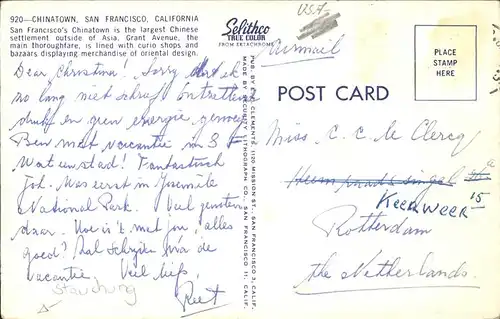 920—CHINATOWN, SAN FRANCISCO, CALIFORNIA
San Francisco's Chinatown is the largest Chinese
settlement outside of Asia, Grant Avenue, the
main thoroughfare, is lined with curio shops and
bazaars displaying merchandise of oriental design.
Dear Christina! Sorry dat ik
zo lang niet schreef. Ontzettend
druk en geen energie genoeg
Ben met vacantie in S F
Wat een stad! Fantastisch
Joh. Was eerst in Yosemite
National Park. Veel genoten
daar. Hoe is 't met jou, alles
goed? Zal schrijven na de
vacantie. Veel liefs,
Reet
Stauchung
Selithco
TRUE COLOR
FROM EKTACHROME
PUB. BY F. CLEMENTS, 1120 MISSION ST., SAN FRANCISCO 3, CALIF.
MADE BY SECURITY LITHOGRAPH CO. SAN FRANCISCO 11, CALIF.
USA
Airmail
PLACE
STAMP
HERE
POST CARD
Miss C. C. de Clercq
KEERWEER 15
Rotterdam
the Netherlands.